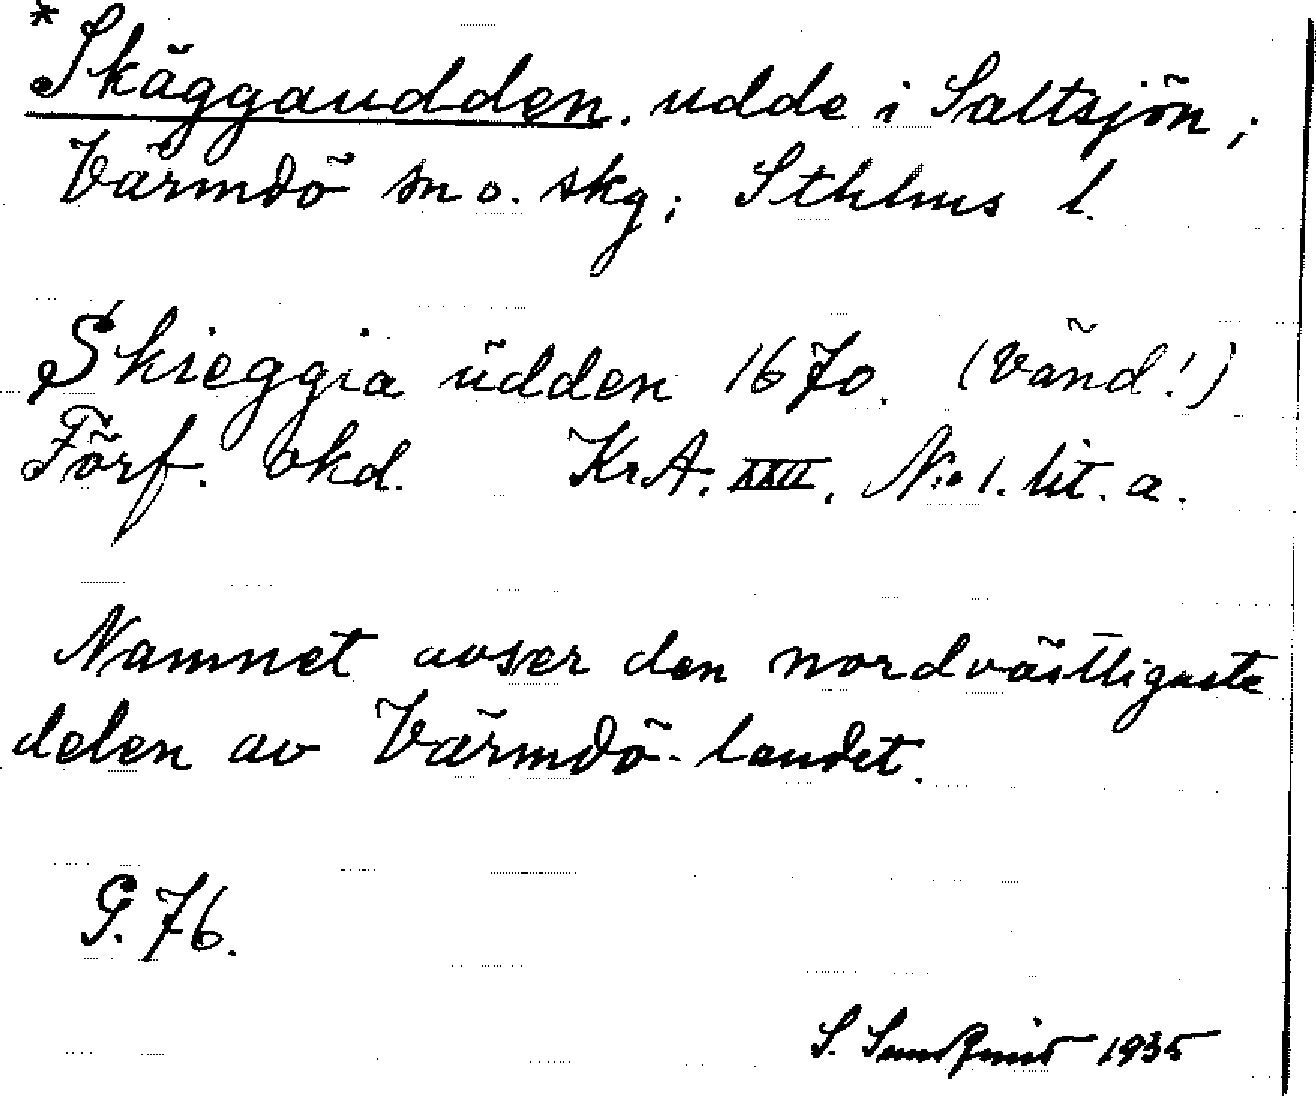 *Skäggaudden. udde i Saltsjön;
Värmdö sn o. skg; Sthlms l.
Skieggia üdden 1670. (Vänd!)
Förf. okd. KrA. XXII. No 1. lit. a.
Namnet avser den nordvästligaste
delen av Värmdö-landet.
G. 76.
S. Sundqvist 1935